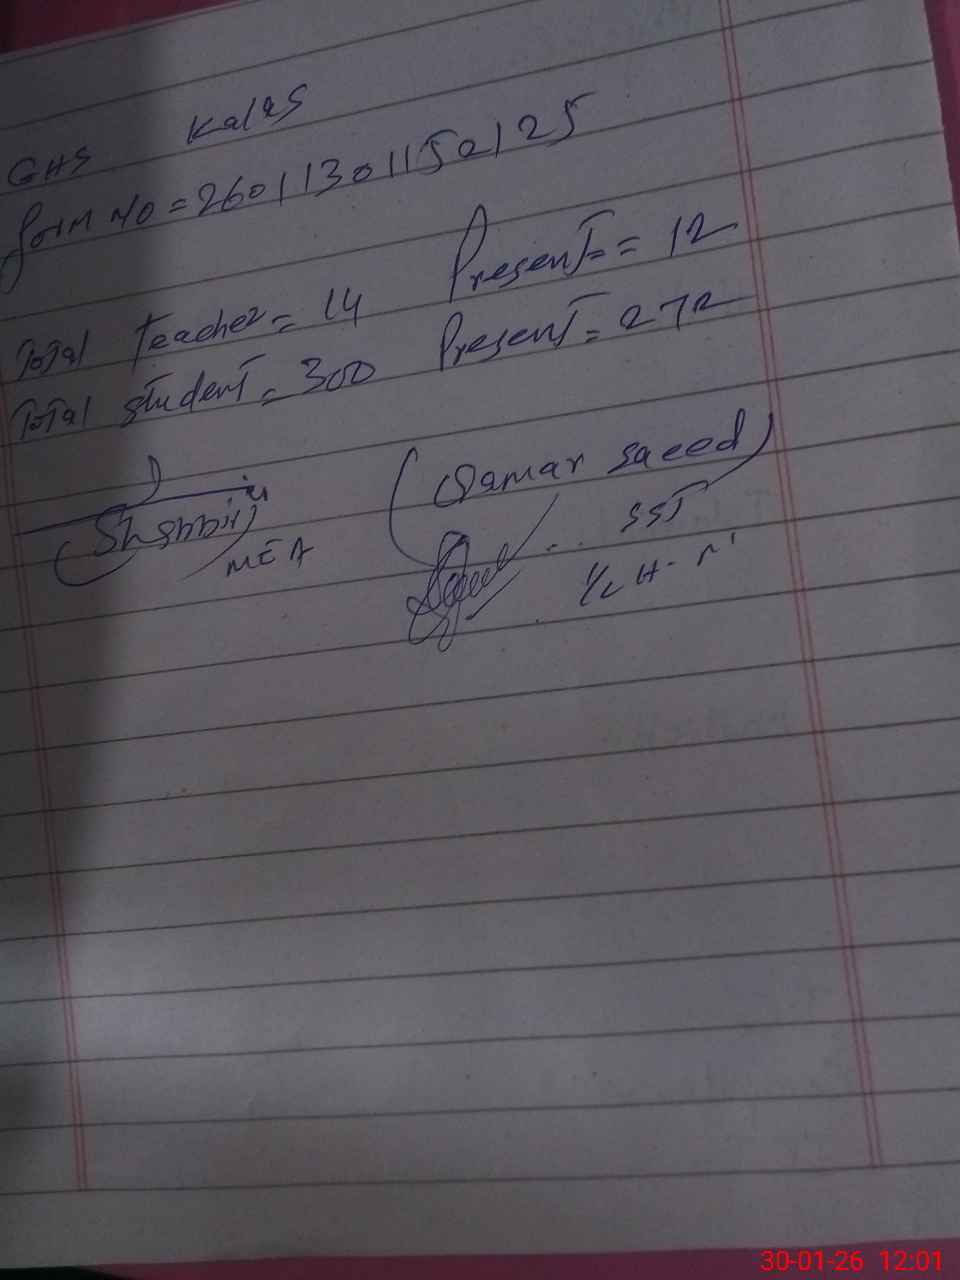 GHS Kalas
form NO = 260113011502125
Total teacher = 14 Present = 12
Total student = 300 Present = 272
(Shabbir)
MEA
(Qamar Saeed)
SST
I/C H-M
30-01-26 12:01